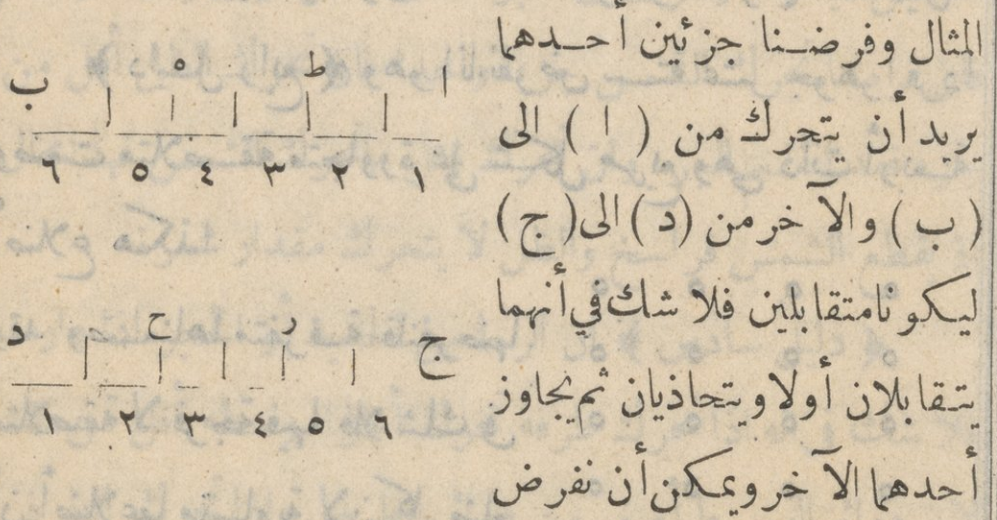 المثال وفرضنا جزئين أحدهما
يريد أن يتحرك من ( ا ) الى
( ب ) والآخر من ( د ) الى ( ج )
ليكونا متقابلين فلا شك في أنهما
يتقابلان أولا ويتحاذيان ثم يجاوز
أحدهما الآخر ويمكن أن نفرض
ا ط ه ب
١ ٢ ٣ ٤ ٥ ٦
ج ر ح د
٦ ٥ ٤ ٣ ٢ ١